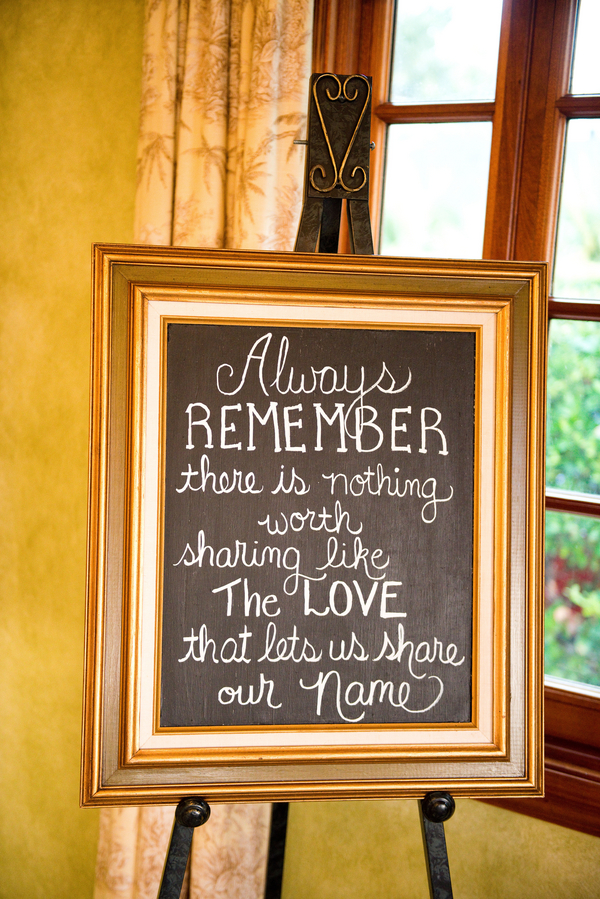 Always
REMEMBER
there is nothing
worth
sharing like
The LOVE
that lets us share
our Name